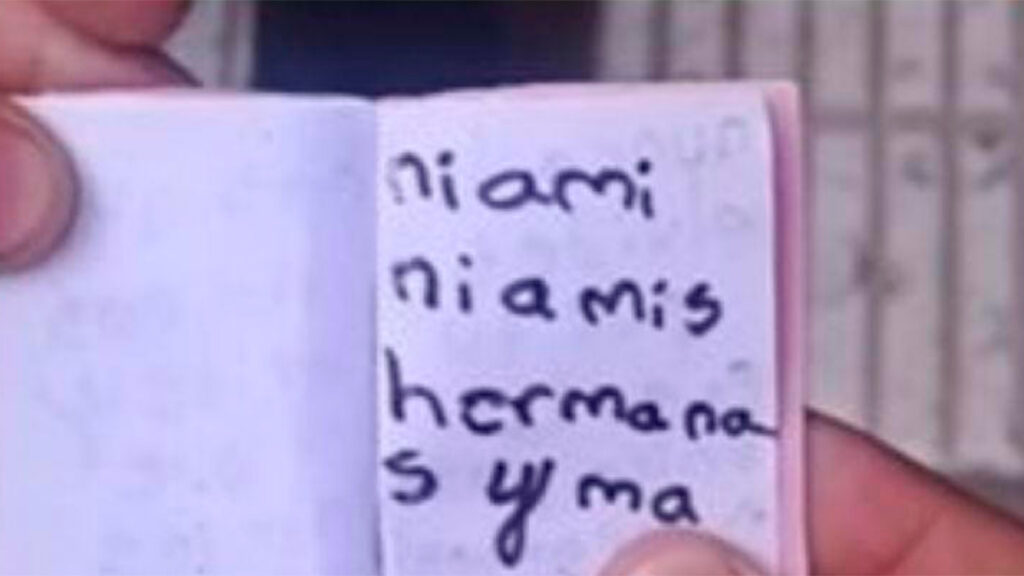 ni ami
ni amis
hermana
s y ma